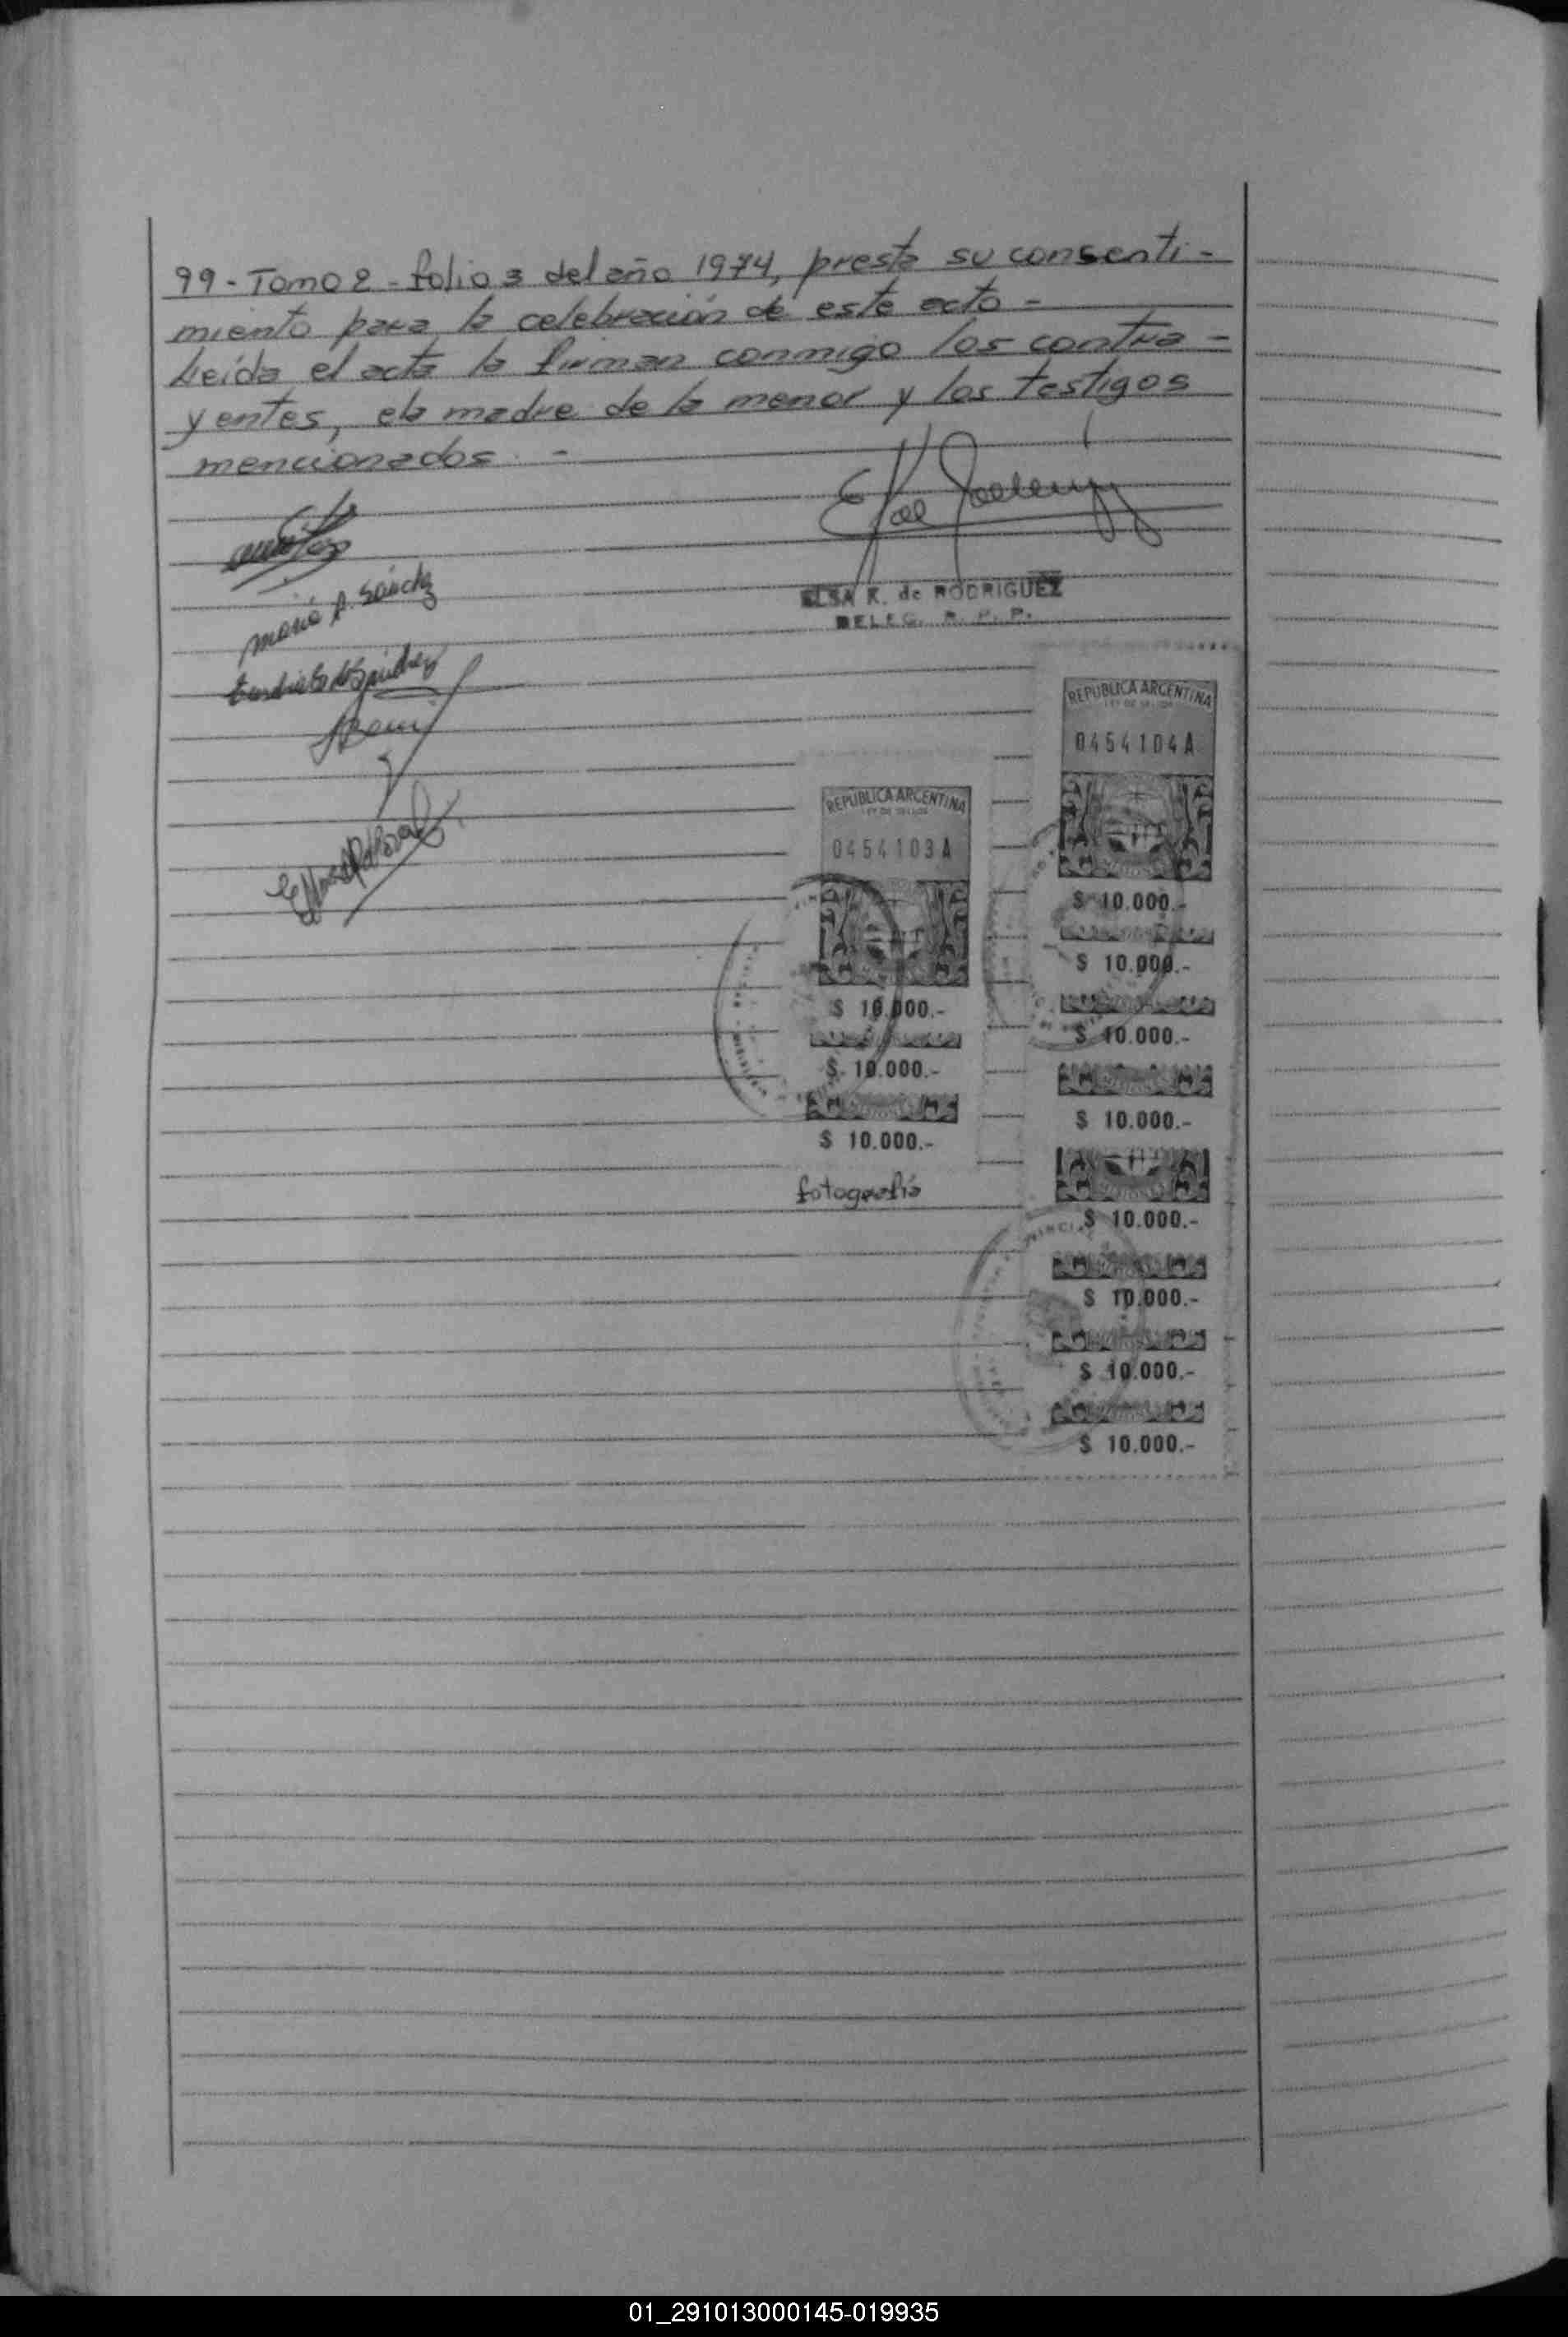 99 - Tomo 2 - folio 3 del año 1974, presta su consenti -
miento para la celebración de este acto -
Leída el acta la firman conmigo los contra -
yentes, ela madre de la menor y los testigos
mencionados. -
María A. Sánchez
de Sánchez
ELSA K. de RODRIGUEZ
DELEG. R. P. P.
REPUBLICA ARGENTINA
LEY DE SELLOS
0454104A
$ 10.000.-
$ 10.000.-
$ 10.000.-
$ 10.000.-
$ 10.000.-
$ 10.000.-
$ 10.000.-
$ 10.000.-
REPUBLICA ARGENTINA
LEY DE SELLOS
0454103A
$ 10.000.-
$ 10.000.-
$ 10.000.-
fotografía
01_291013000145-019935